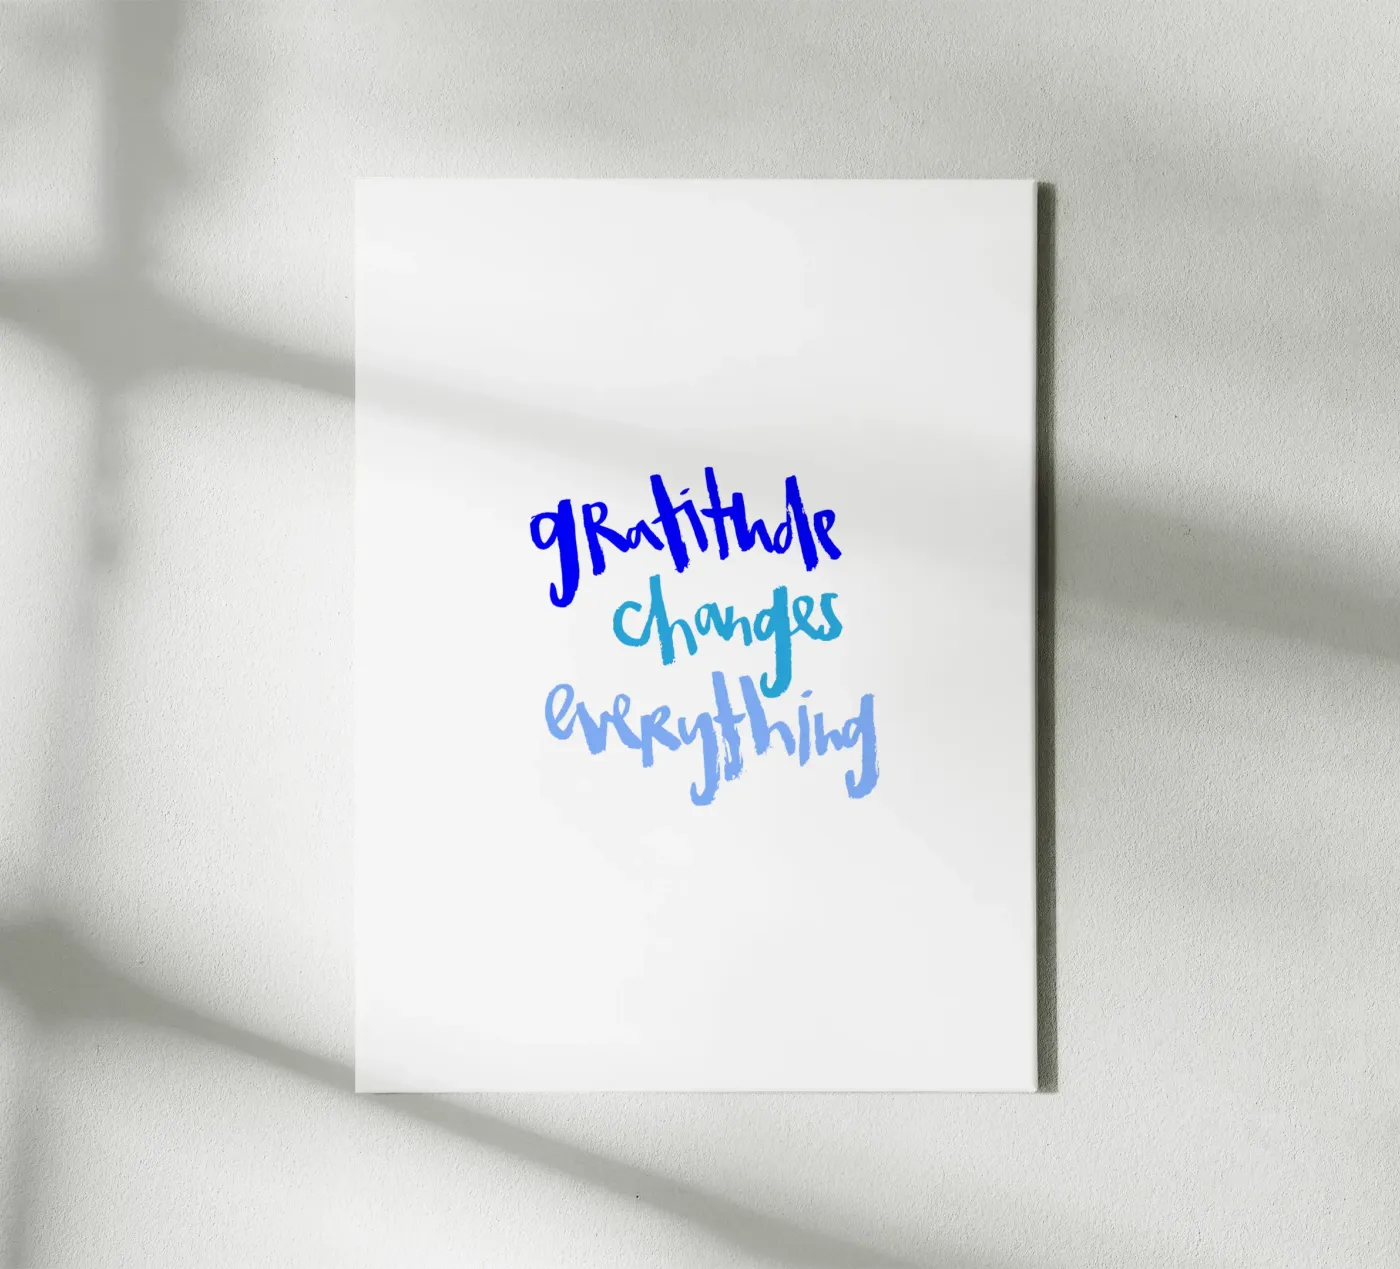 gratitude
changes
everything